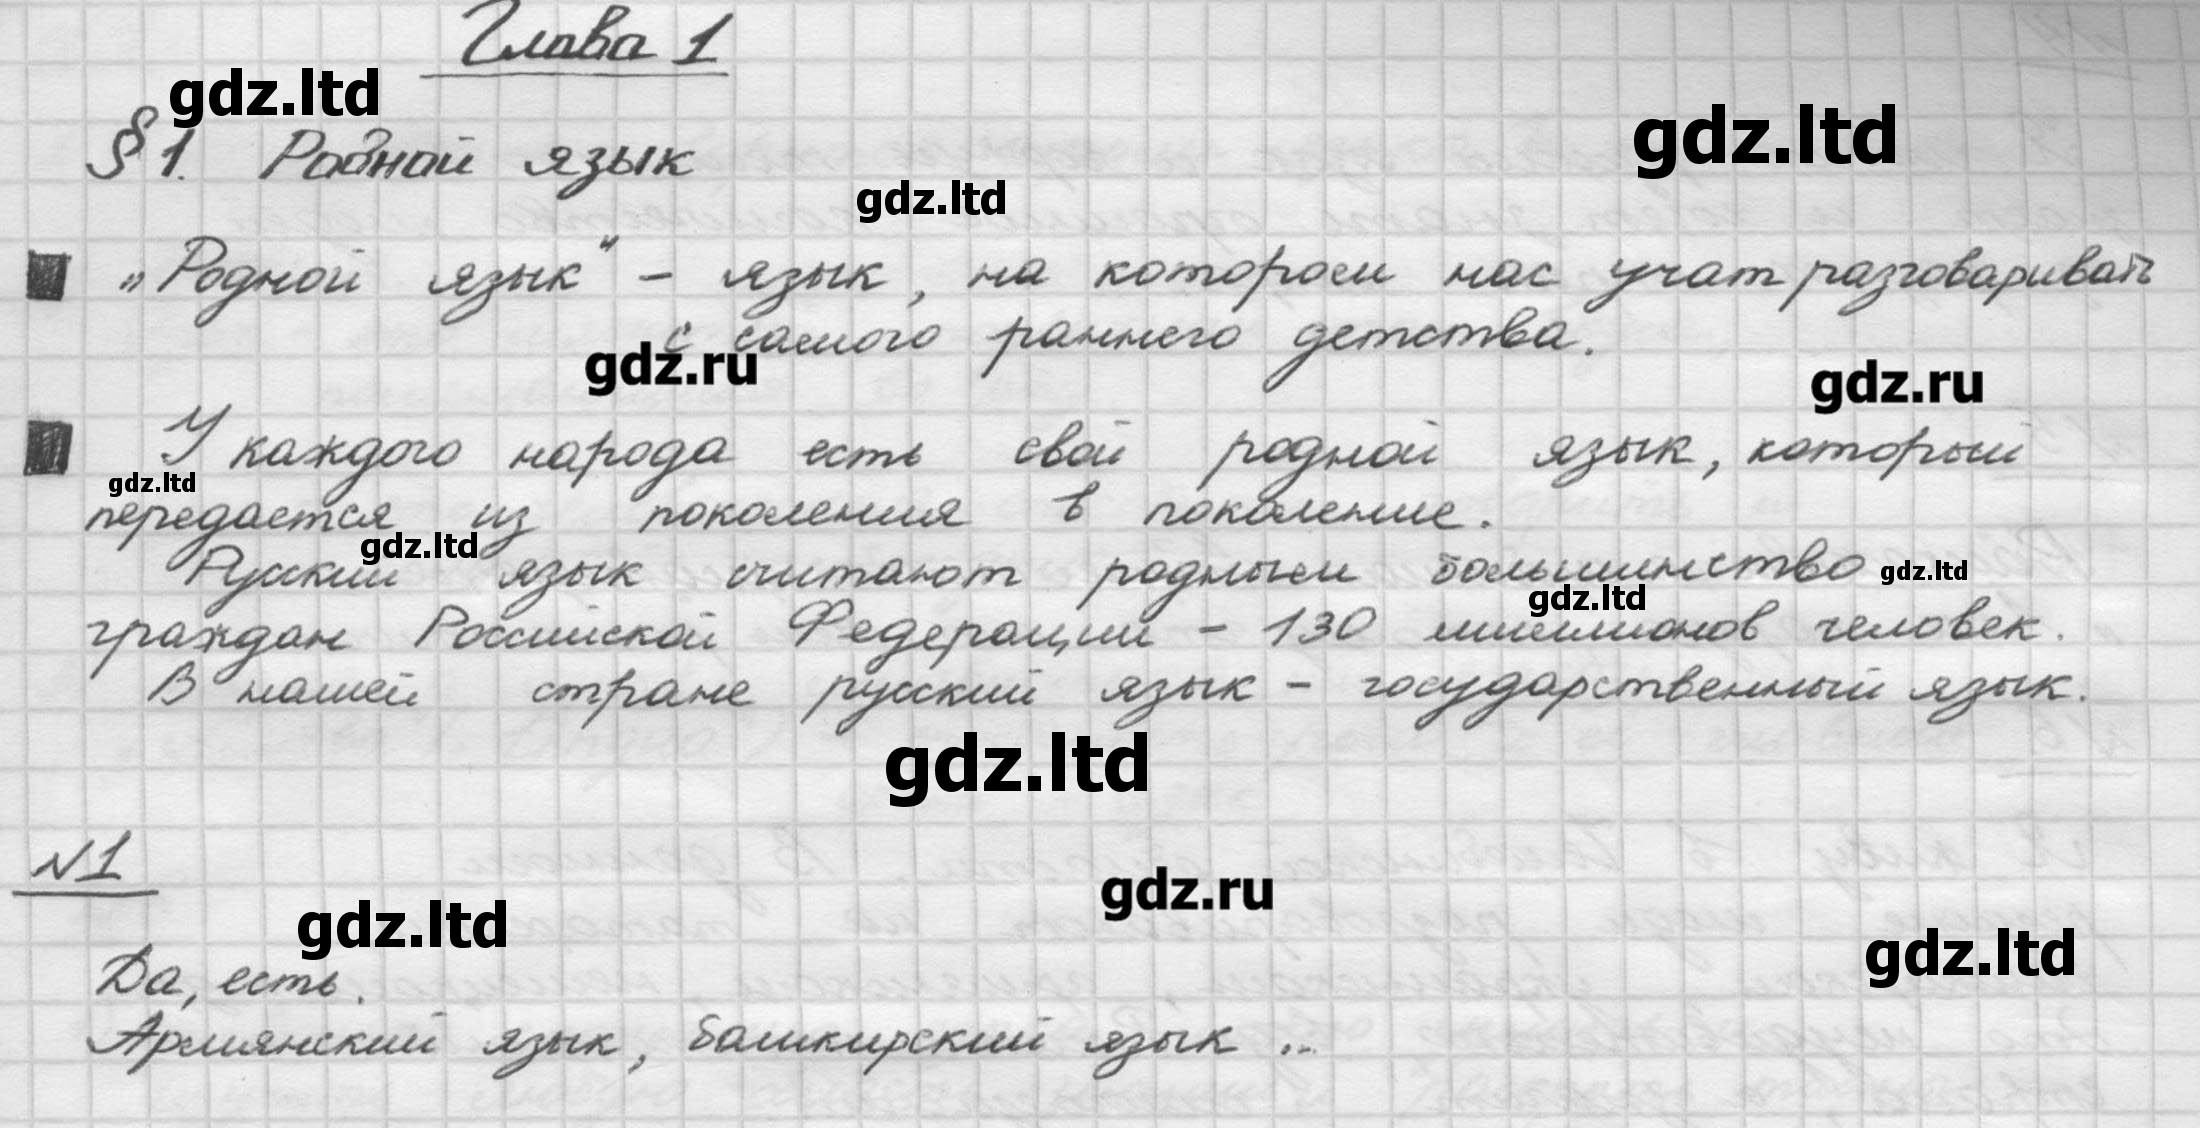 Глава 1
gdz.ltd
gdz.ltd
§ 1. Родной язык
gdz.ltd
„Родной язык“ – язык, на котором нас учат разговаривать
с самого раннего детства.
gdz.ru
gdz.ru
У каждого народа есть свой родной язык, который
gdz.ltd
передается из поколения в поколение.
gdz.ltd
Русский язык считают родным большинство
gdz.ltd
gdz.ltd
граждан Российской Федерации – 130 миллионов человек.
В нашей стране русский язык – государственный язык.
gdz.ltd
№1
gdz.ru
gdz.ltd
gdz.ltd
Да, есть.
Армянский язык, башкирский язык ..